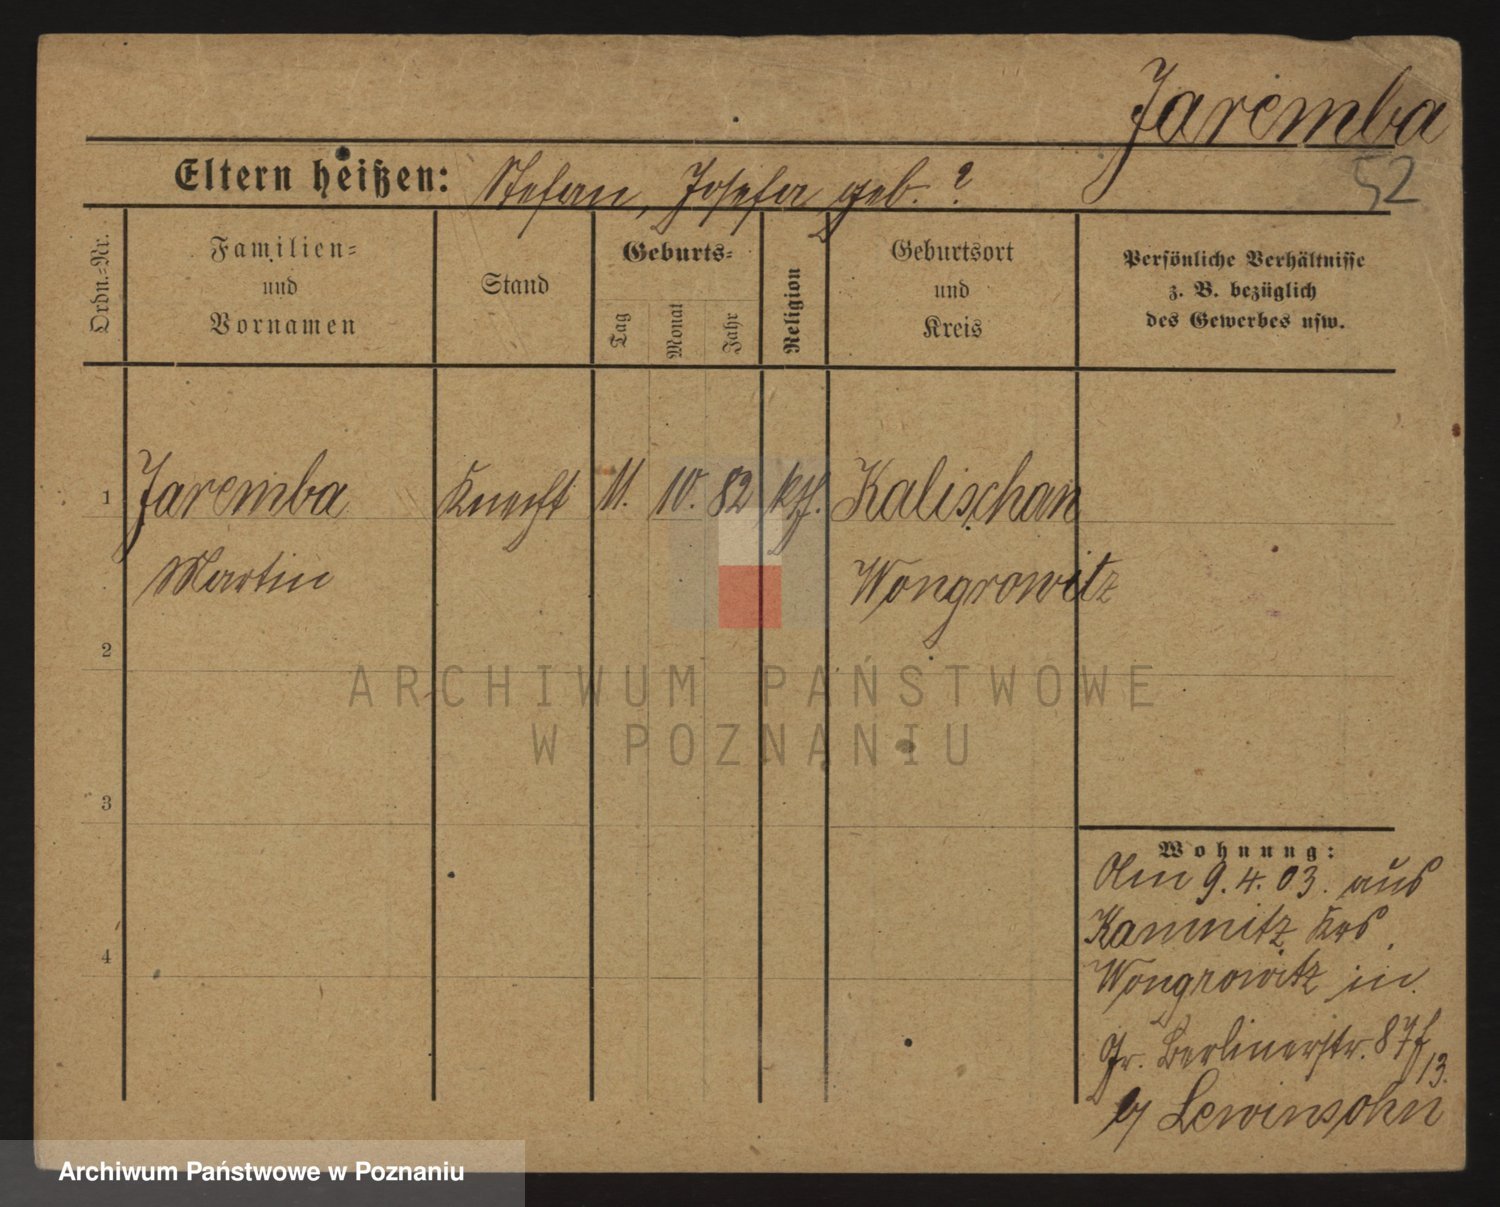 Jaremba
52
Eltern heißen: Stefan, Josefa geb. ?
Ordn.-Nr.
Familien-
und
Vornamen
Stand
Geburts-
Tag
Monat
Jahr
Religion
Geburtsort
und
Kreis
Persönliche Verhältnisse
z. B. bezüglich
des Gewerbes usw.
1 Jaremba Knecht 11. 10. 82 kth. Kalischan
Martin Wongrowitz
2
3
4
ARCHIWUM PAŃSTWOWE
W POZNANIU
Wohnung:
Am 9.4.03. aus
Kamnitz Krs.
Wongrowitz in
Gr. Berlinerstr. 87
13.
b/ Lewinsohn
Archiwum Państwowe w Poznaniu